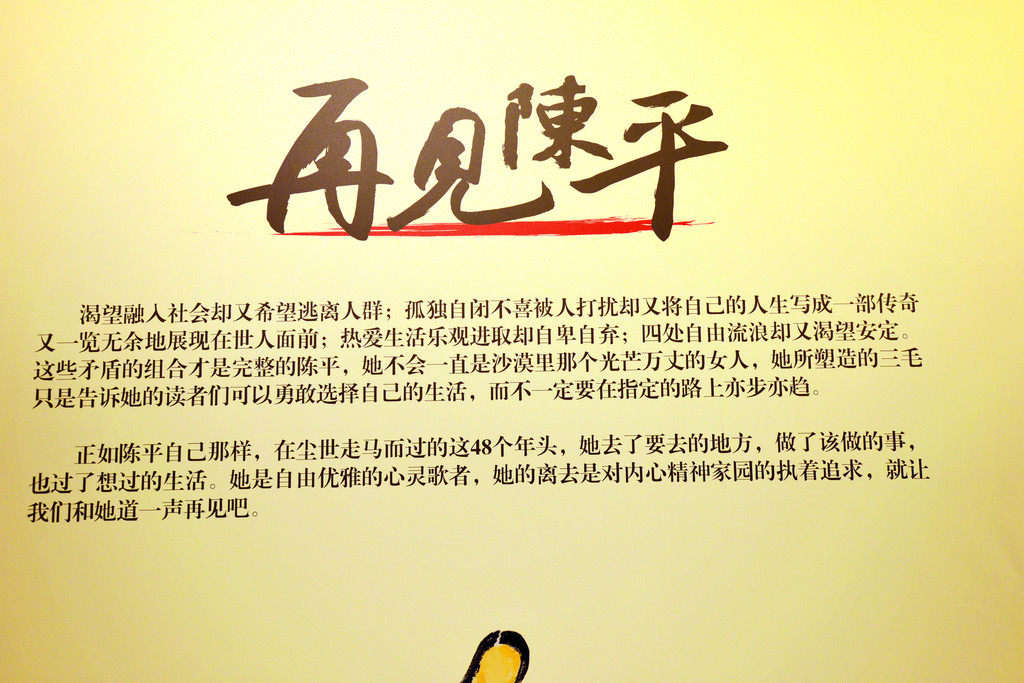 再见陳平
渴望融入社会却又希望逃离人群；孤独自闭不喜被人打扰却又将自己的人生写成一部传奇
又一览无余地展现在世人面前；热爱生活乐观进取却自卑自弃；四处自由流浪却又渴望安定。
这些矛盾的组合才是完整的陈平，她不会一直是沙漠里那个光芒万丈的女人，她所塑造的三毛
只是告诉她的读者们可以勇敢选择自己的生活，而不一定要在指定的路上亦步亦趋。
正如陈平自己那样，在尘世走马而过的这48个年头，她去了要去的地方，做了该做的事，
也过了想过的生活。她是自由优雅的心灵歌者，她的离去是对内心精神家园的执着追求，就让
我们和她道一声再见吧。